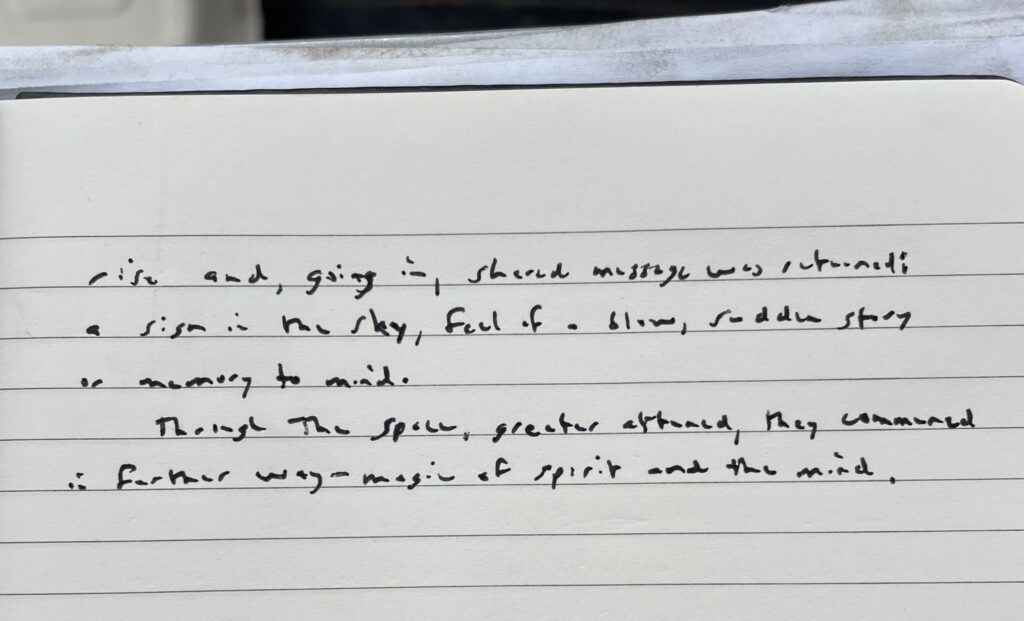 rise and, going in, shared message was returned;
a sign in the sky, feel of a blow, sudden story
or memory to mind.
Through the space, greater attuned, they communed
in further way – magic of spirit and the mind.